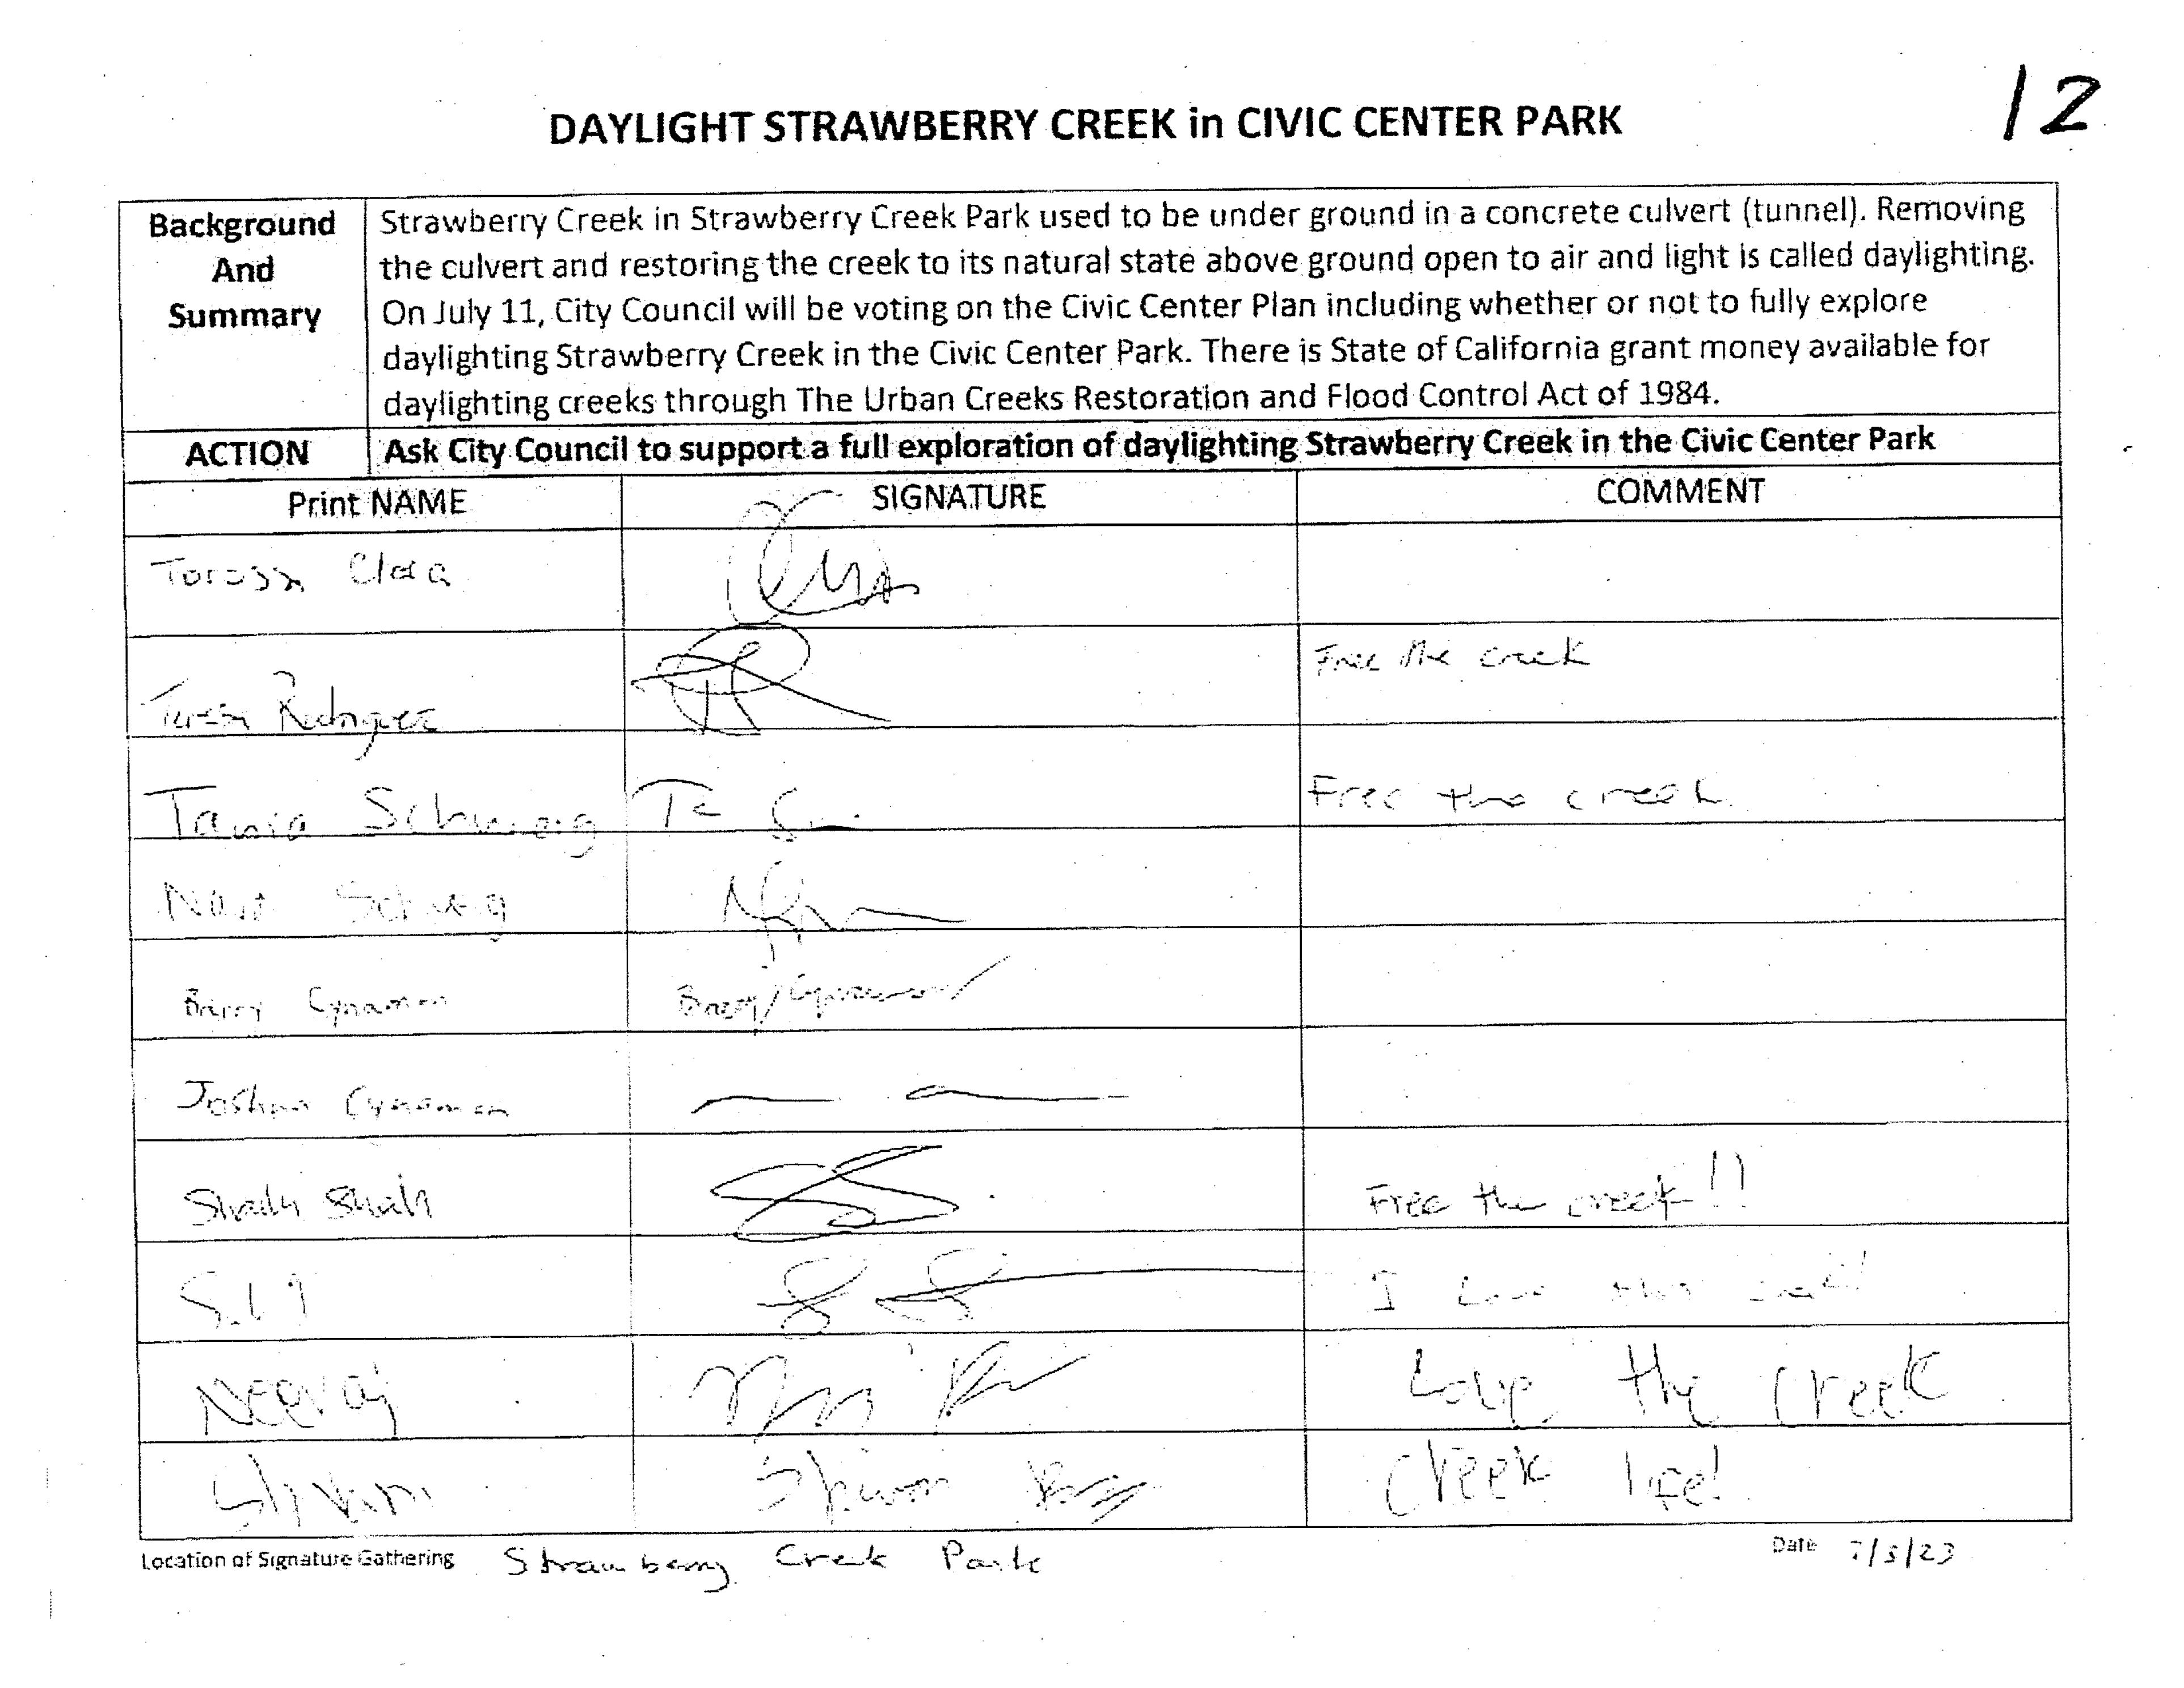 12
DAYLIGHT STRAWBERRY CREEK in CIVIC CENTER PARK
Background And Summary
Strawberry Creek in Strawberry Creek Park used to be under ground in a concrete culvert (tunnel). Removing
the culvert and restoring the creek to its natural state above ground open to air and light is called daylighting.
On July 11, City Council will be voting on the Civic Center Plan including whether or not to fully explore
daylighting Strawberry Creek in the Civic Center Park. There is State of California grant money available for
daylighting creeks through The Urban Creeks Restoration and Flood Control Act of 1984.
ACTION Ask City Council to support a full exploration of daylighting Strawberry Creek in the Civic Center Park
Print NAME SIGNATURE COMMENT
Clara
Rodriguez Free the creek
Tania Schweig Free the creek
Schweig
Barry Cynamon Barry Cynamon
Joshua Cynamon
Shah Free the creek!!
I
Neeraj Love the creek
Shivam Shivam Creek life!
Location of Signature Gathering Strawberry Creek Park Date 7/5/23